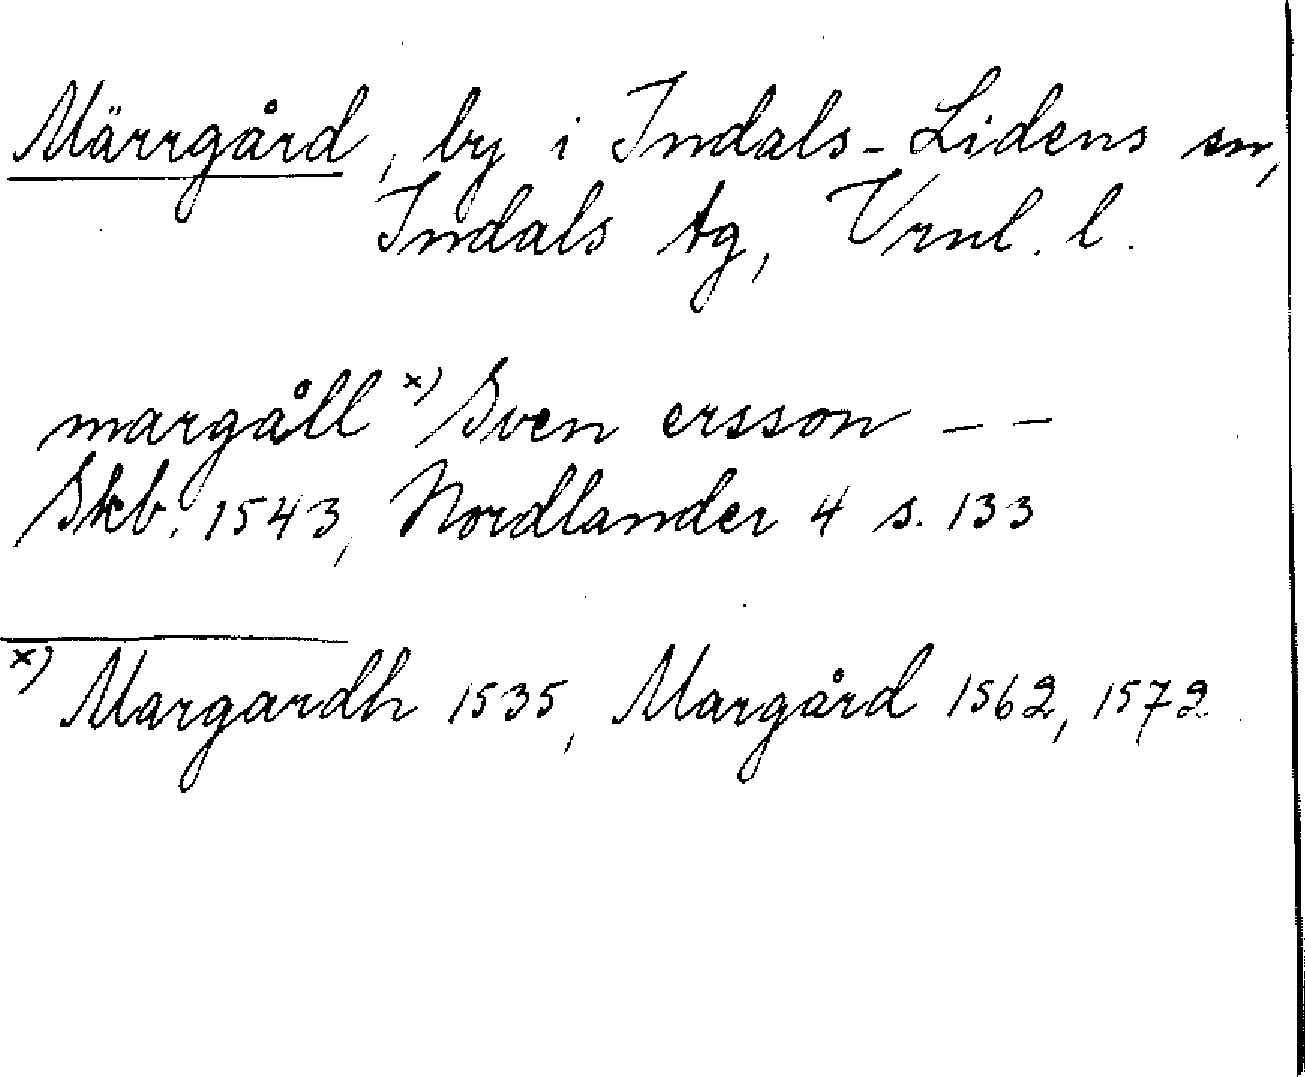 Märrgård, by i Indals-Lidens sn,
Indals tg, Vrnl. l.
margåll x) Sven ersson – –
Skb. 1543, Nordlander 4 s. 133
x) Margardh 1535, Margård 1562, 1572